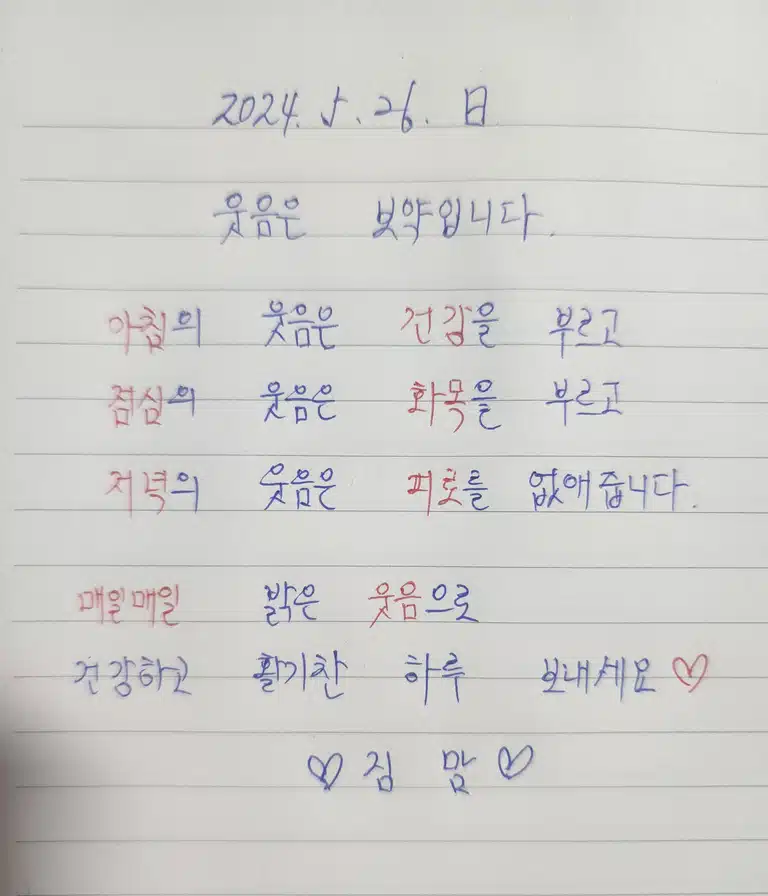 2024. 5. 26. 日
웃음은 보약입니다.
아침의 웃음은 건강을 부르고
점심의 웃음은 화목을 부르고
저녁의 웃음은 피로를 없애줍니다.
매일매일 밝은 웃음으로
건강하고 활기찬 하루 보내세요♡
♡ 짐 맘 ♡